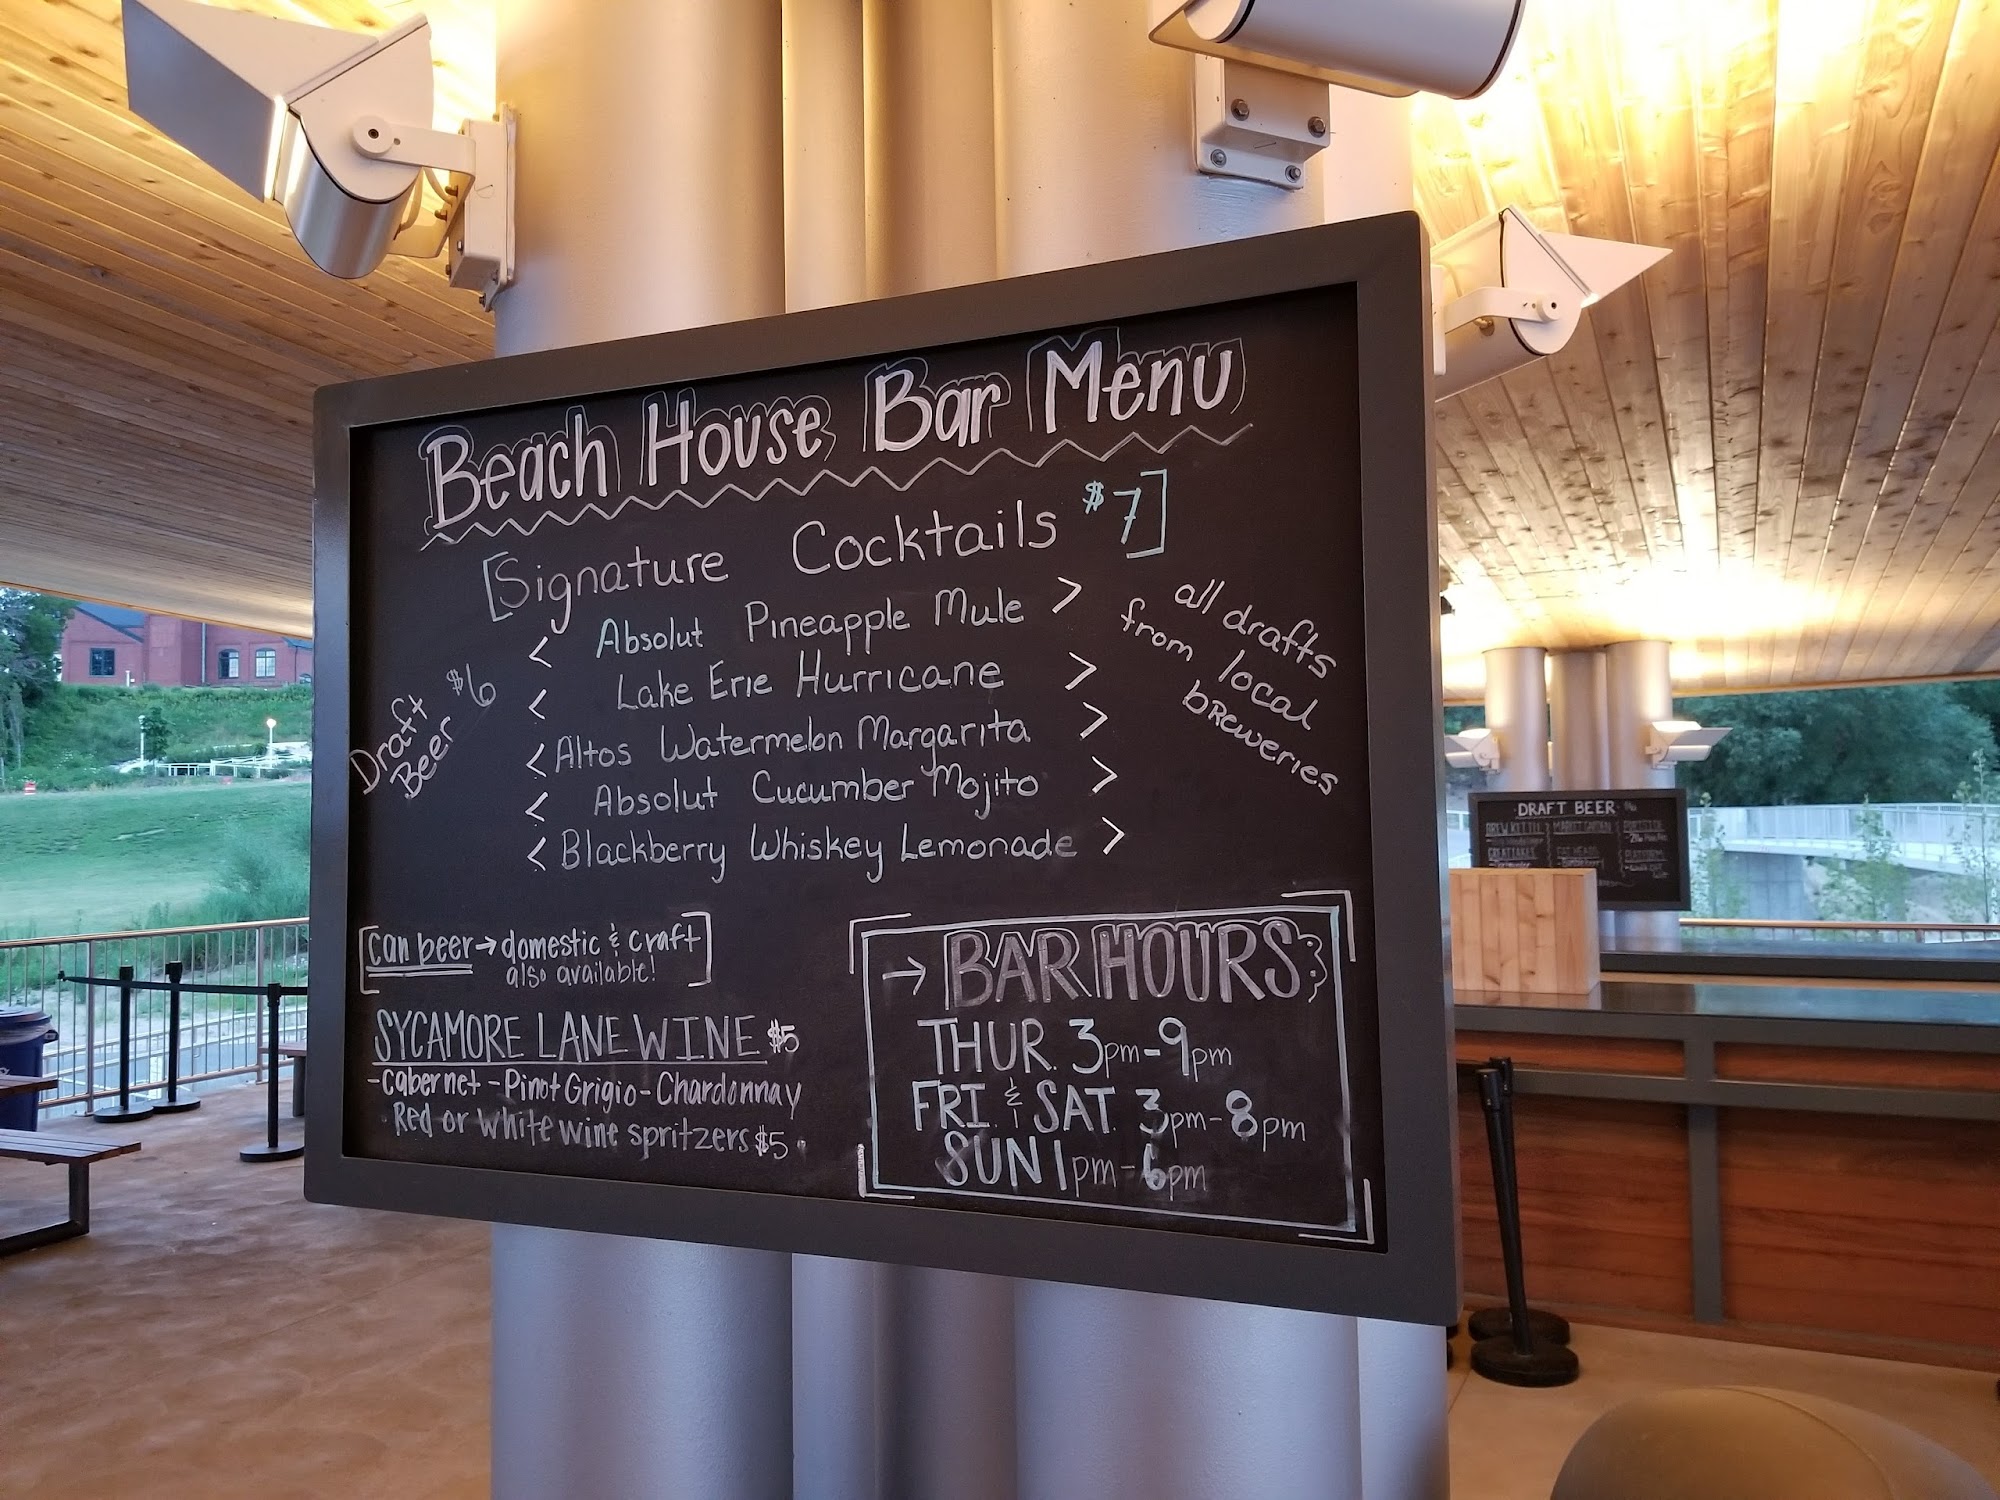 Beach House Bar Menu
[Signature Cocktails $7]
< Absolut Pineapple Mule >
< Lake Erie Hurricane >
< Altos Watermelon Margarita >
< Absolut Cucumber Mojito >
< Blackberry Whiskey Lemonade >
Draft
Beer $6
all drafts
from local
breweries
[can beer → domestic & craft]
also available!
SYCAMORE LANE WINE $5
-Cabernet - Pinot Grigio - Chardonnay
Red or white wine spritzers $5
→ BAR HOURS:
THUR. 3pm-9pm
FRI. & SAT. 3pm-8pm
SUN 1pm-6pm
DRAFT BEER
MARKET GARDEN
GREAT LAKES
FAT HEADS
PLATFORM